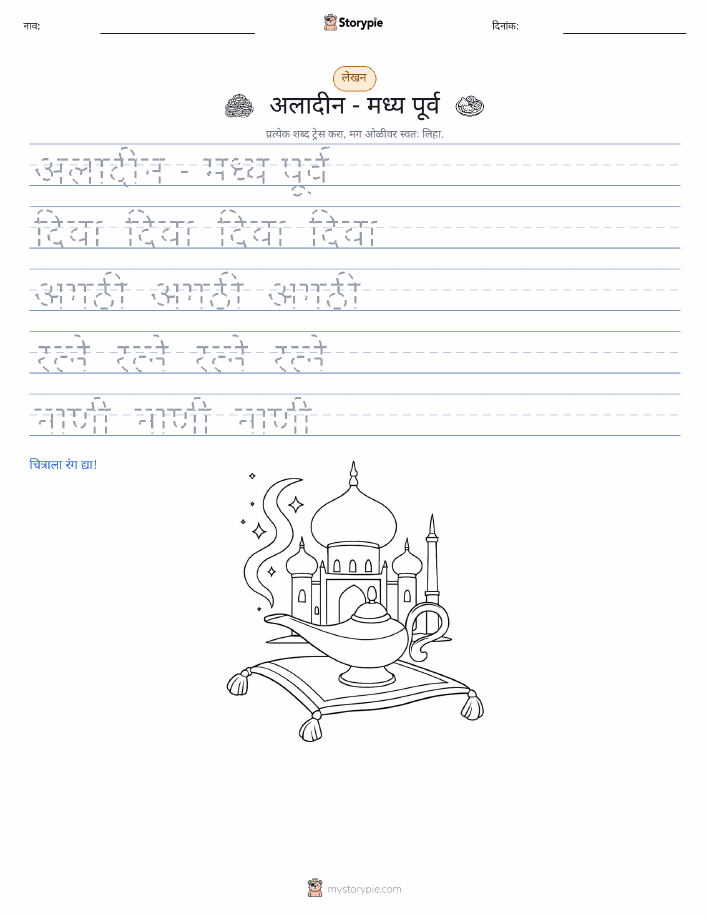 नाव:
Storypie
दिनांक:
लेखन
अलादीन - मध्य पूर्व
प्रत्येक शब्द ट्रेस करा, मग ओळीवर स्वतः लिहा.
अलादीन - मध्य पूर्व
दिवा दिवा दिवा दिवा
अंगठी अंगठी अंगठी
रत्ने रत्ने रत्ने रत्ने
नाणी नाणी नाणी
चित्राला रंग द्या!
mystorypie.com